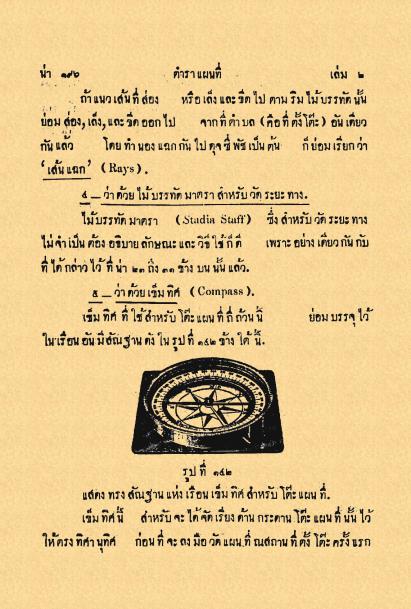 น่า ๑๙๖ ตำราแผนที่ เล่ม ๒
ถ้าแนวเส้นที่ส่อง หรือเล็งและขีดไปตามริมไม้บรรทัดนั้น
ย่อมส่อง,เล็ง,และขีดออกไป จากที่ตำบล (คือที่ตั้งโต๊ะ) อันเดียว
กันแล้ว โดยทำนองแฉกกันไปดุจซี่พัชเป็นต้น ก็ย่อมเรียกว่า
‘เส้นแฉก’ (Rays).
๔ — ว่าด้วยไม้บรรทัดมาตราสำหรับวัดระยะทาง.
ไม้บรรทัดมาตรา (Stadia Staff) ซึ่งสำหรับวัดระยะทาง
ไม่จำเป็นต้องอธิบายลักษณะและวิธีใช้ก็ดี เพราะอย่างเดียวกันกับ
ที่ได้กล่าวไว้ที่น่า ๒๓ ถึง ๓๑ ข้างบนนั้นแล้ว.
๕ — ว่าด้วยเข็มทิศ (Compass).
เข็มทิศที่ใช้สำหรับโต๊ะแผนที่ถี่ถ้วนนี้ ย่อมบรรจุไว้
ในเรือนอันมีสัณฐานดังในรูปที่ ๑๔๒ ข้างใต้นี้.
รูปที่ ๑๔๒
แสดงทรงสัณฐานแห่งเรือนเข็มทิศสำหรับโต๊ะแผนที่.
เข็มทิศนี้ สำหรับจะได้จัดเรียงด้านกระดานโต๊ะแผนที่นั้นไว้
ให้ตรงทิศานุทิศ ก่อนที่จะลงมือวัดแผนที่ณสถานที่ตั้งโต๊ะครั้งแรก